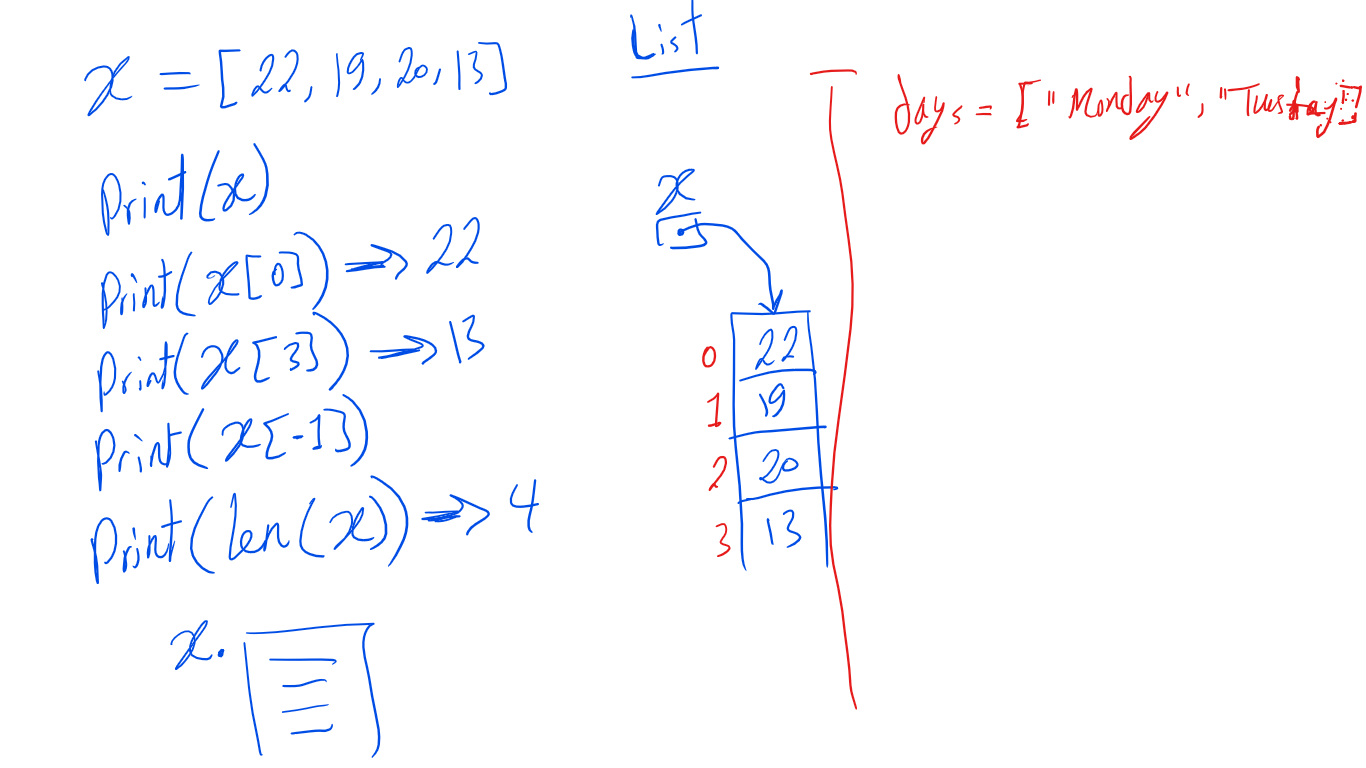 List
x = [22, 19, 20, 13]
Print(x)
Print(x[0]) => 22
Print(x[3]) => 13
Print(x[-1])
Print(len(x)) => 4
x.
x
0 22
1 19
2 20
3 13
days = ["Monday", "Tuesday]